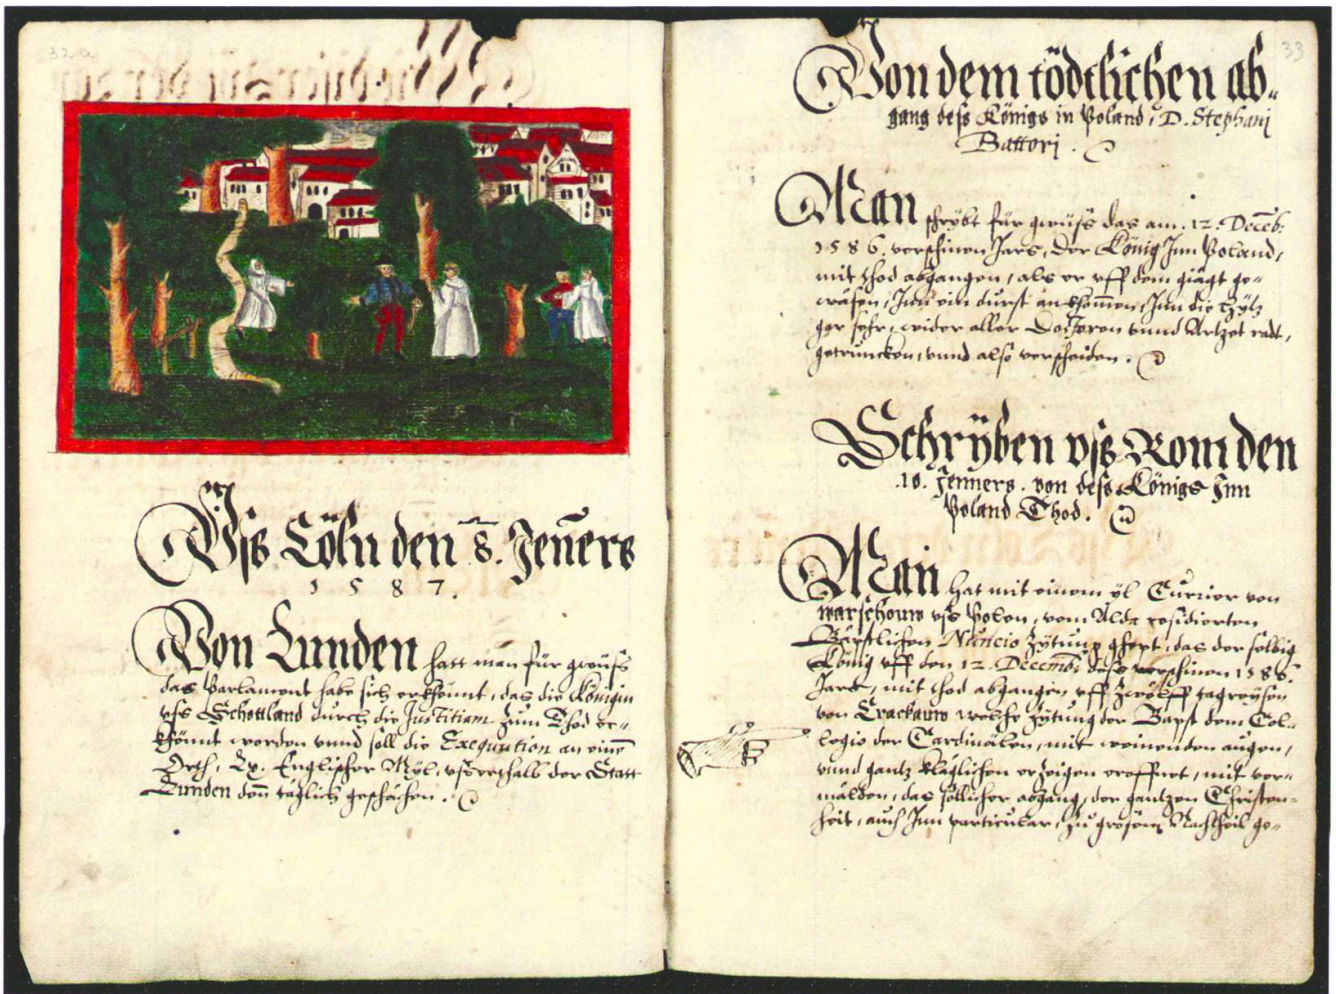 32a
Vſs Cöln den 8. Jenners
1587.
Von Lunden hatt man für gwüſs
das Parlament habe sich erkhönnt, das die Königin
vſs Schottland durch die Justitiam zum Thod er-
khönnt worden vnnd soll die Exequution an einem
Orth, Lx. Englischer Myl, vſserthalb der Statt
Lunden denn täglich geschächen.
33
Von dem tödtlichen ab-
gang deſs Königs in Poland, D. Stephanj
Battorj.
Man schrybt für gwüſs das am .12. Decēb:
1586. verschinen Jars, der König Jnn Poland,
mit thod abgangen, als er vff dem giägt ge-
wäsen, Jnn ein durst ankhommen, Jnn die Hytz
gar sehr, wider aller Doctoren vnnd Artzet radt,
getruncken, vnnd also verscheiden.
Schryben vſs Rom den
.10. Jenners. von deſs Königs Jnn
Poland Thod.
Man hat mit einem yl Currier von
warschouw vſs Polen, vom Alda residierten
Bäpstlichen Nuncio Zytung ghept, das derselbig
König vff den 12. Decemb: deſs verschinen 1586.
Jars, mit thod abgangen, vff zwölff tagreysen
von Crackauw welche Zytung der Bapst dem Col-
legio der Cardinälen, mit weinenden augen,
vnnd gantz kläglichen erzeigen eroffnet, mit ver-
mälden, das söllicher abgang, der gantzen Christen-
heit, auch Jnn particular, zu grossem Nachtheil ge-